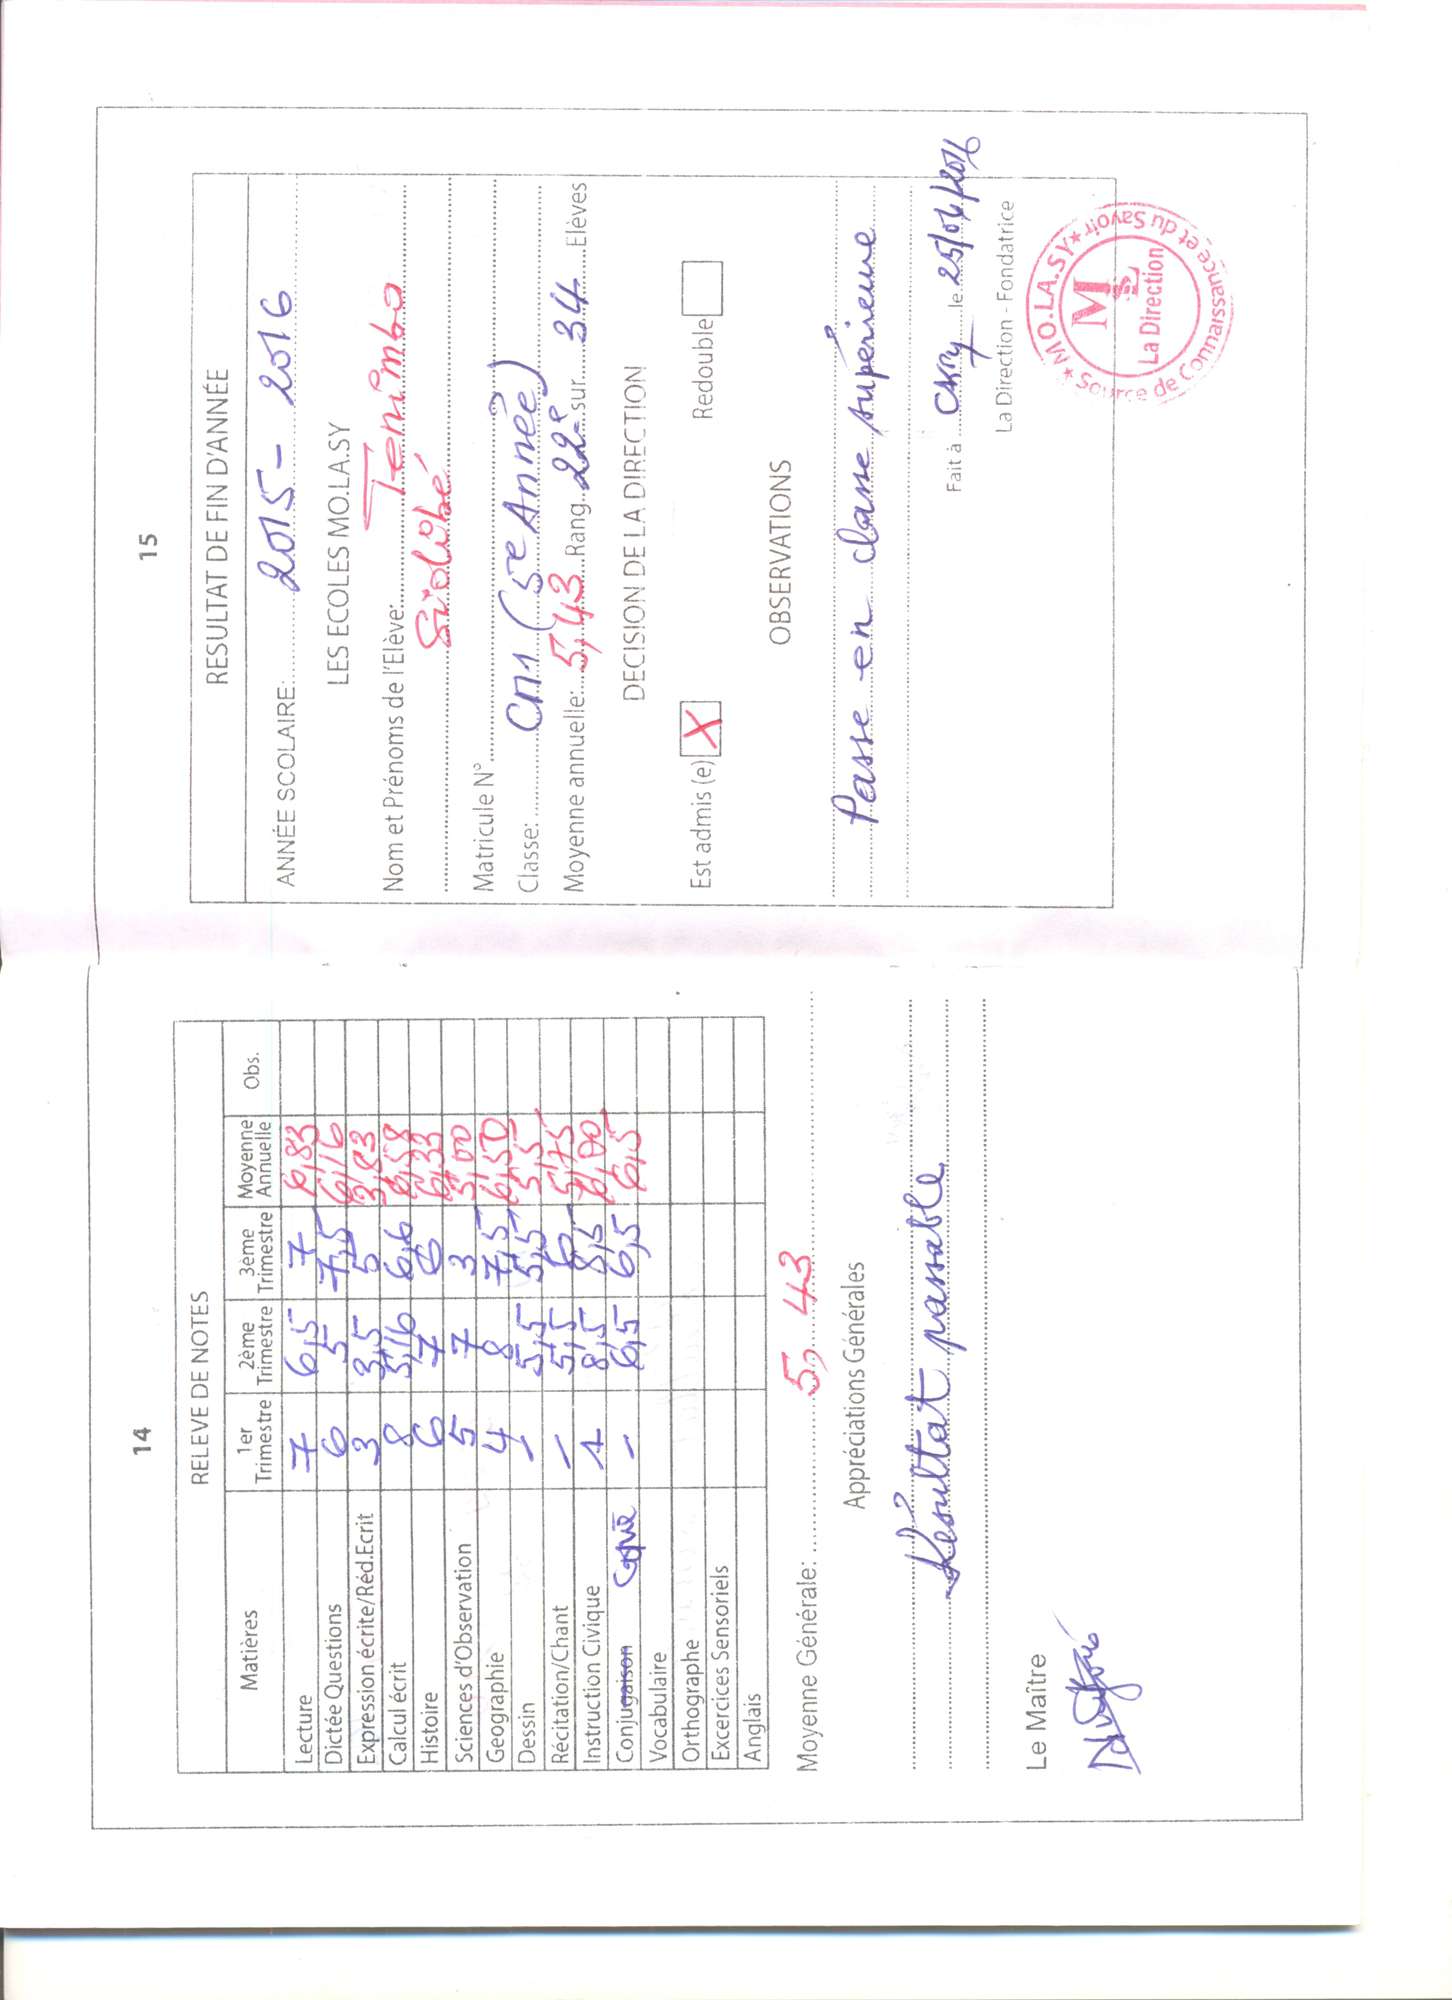 14
RELEVE DE NOTES
Matières 1er Trimestre 2ème Trimestre 3ème Trimestre Moyenne Annuelle Obs.
Lecture 7 6,5 7 6,83
Dictée Questions 6 5 7,5 6,16
Expression écrite/Réd.Ecrit 3 3,5 5 3,83
Calcul écrit 8 5,16 6,6 6,58
Histoire 6 7 6 6,33
Sciences d'Observation 5 7 3 5,00
Geographie 4 8 7,5 6,50
Dessin / 5,5 5,5 5,5
Récitation/Chant / 5,5 6 5,75
Instruction Civique 1 8,5 8,5 6,00
Conjugaison Copie / 6,5 6,5 6,5
Vocabulaire
Orthographe
Excercices Sensoriels
Anglais
Moyenne Générale: 5,43
Appréciations Générales
Résultat passable
Le Maître
15
RESULTAT DE FIN D'ANNÉE
ANNÉE SCOLAIRE: 2015 - 2016
LES ECOLES MO.LA.SY
Nom et Prénoms de l'Elève: Tenimba
Sidibé
Matricule N°
Classe: CM1 (5e Année)
Moyenne annuelle: 5,43 Rang 22e sur 34 Elèves
DECISION DE LA DIRECTION
Est admis (e) X Redouble
OBSERVATIONS
Passe en classe supérieure
Fait à Ckry le 25/06/2016
La Direction - Fondatrice
★ MO.LA.SY ★
Source de Connaissance et du Savoir
M
La Direction